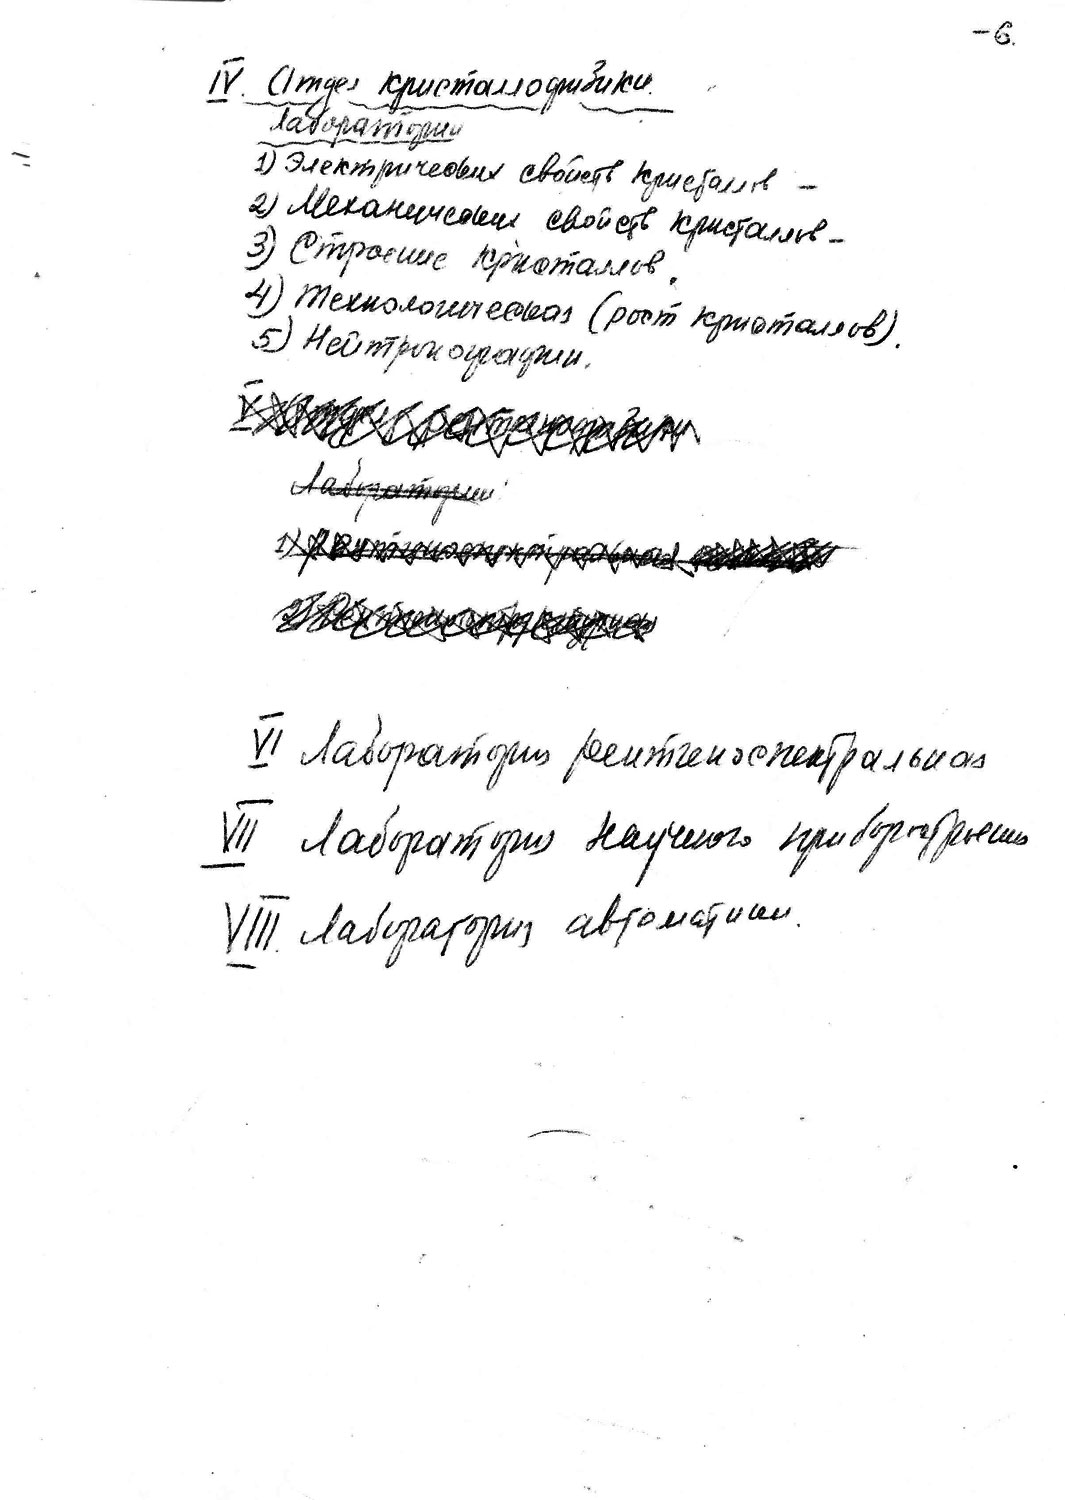 -6.
IV. Отдел кристаллофизики.
Лаборатории
1) Электрических свойств кристаллов -
2) Механических свойств кристаллов -
3) Строение кристаллов.
4) Технологическая (рост кристаллов).
5) Нейтронографии.
V Отдел рентгенофизики
Лаборатории:
1) Рентгеноспектральная
2)
VI Лаборатория рентгеноспектральная
VII Лаборатория научного приборостроения
VIII. Лаборатория автоматики.